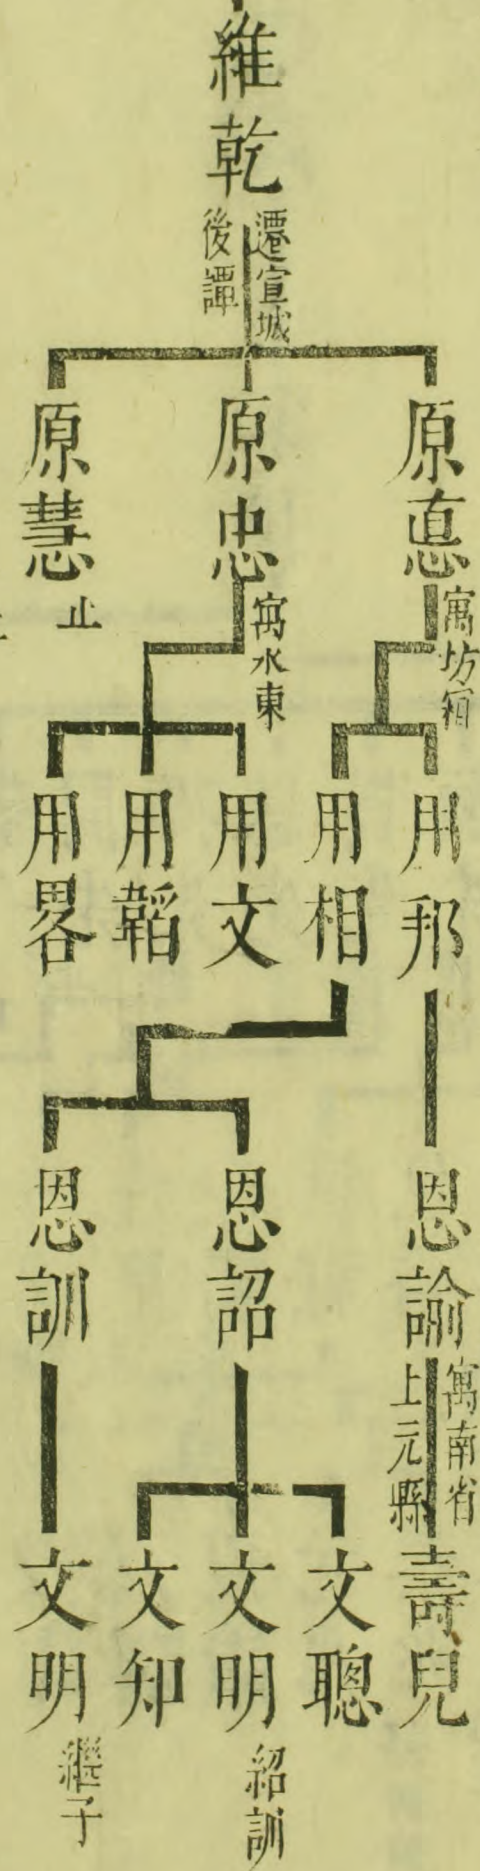 維乾
遷宣城
後譚
原悳
寓坊甯
原忠
寓水東
原慧
止
用邦
用相
用文
用韜
用畧
恩諭
寓南省
上元縣
恩詔
恩訓
壽兒
文聰
文明
紹訓
文知
文明
繼子